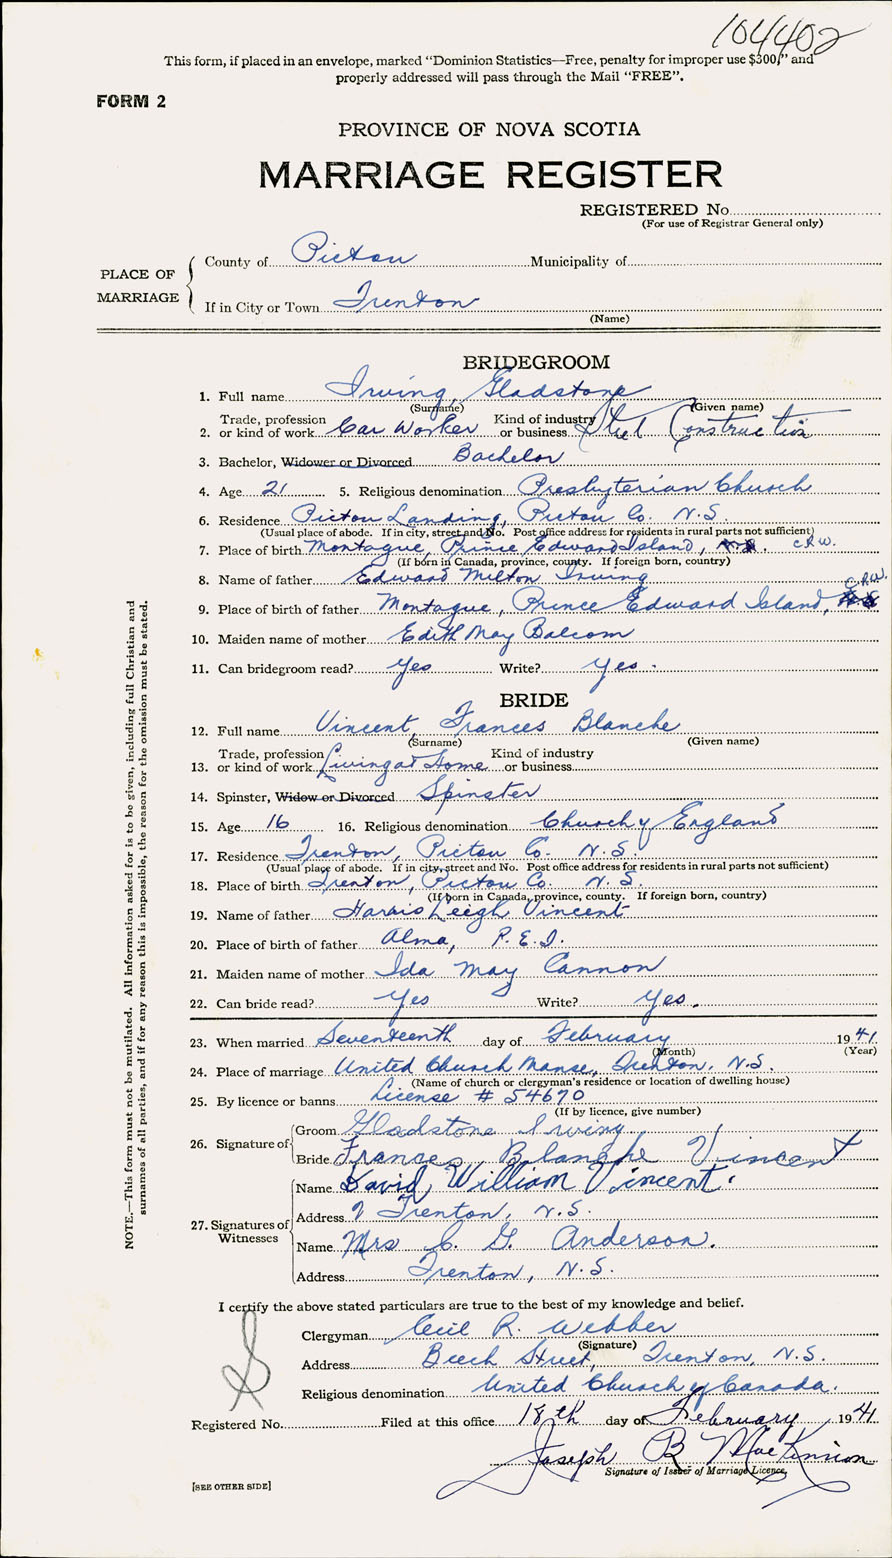 104402
This form, if placed in an envelope, marked "Dominion Statistics—Free, penalty for improper use $300," and
properly addressed will pass through the Mail "FREE".
FORM 2
PROVINCE OF NOVA SCOTIA
MARRIAGE REGISTER
REGISTERED No.
(For use of Registrar General only)
PLACE OF MARRIAGE
County of Pictou Municipality of
If in City or Town Trenton
(Name)
BRIDEGROOM
1. Full name Irving, Gladstone
(Surname) (Given name)
2. Trade, profession or kind of work Car Worker Kind of industry or business Steel Construction
3. Bachelor, Widower or Divorced Bachelor
4. Age 21 5. Religious denomination Presbyterian Church
6. Residence Pictou Landing, Pictou Co. N.S.
(Usual place of abode. If in city, street and No. Post office address for residents in rural parts not sufficient)
7. Place of birth Montague, Prince Edward Island, N.S. C.R.W.
(If born in Canada, province, county. If foreign born, country)
8. Name of father Edward Milton Irving
C.R.W.
9. Place of birth of father Montague, Prince Edward Island, N.S.
10. Maiden name of mother Edith May Balcom
11. Can bridegroom read? Yes Write? Yes.
BRIDE
12. Full name Vincent, Frances Blanche
(Surname) (Given name)
13. Trade, profession or kind of work Living at Home Kind of industry or business
14. Spinster, Widow or Divorced Spinster
15. Age 16 16. Religious denomination Church of England
17. Residence Trenton, Pictou Co. N.S.
(Usual place of abode. If in city, street and No. Post office address for residents in rural parts not sufficient)
18. Place of birth Trenton, Pictou Co. N.S.
(If born in Canada, province, county. If foreign born, country)
19. Name of father Harris Leigh Vincent
20. Place of birth of father Alma, P.E.I.
21. Maiden name of mother Ida May Cannon
22. Can bride read? Yes Write? Yes.
23. When married Seventeenth day of February 1941
(Month) (Year)
24. Place of marriage United Church Manse, Trenton, N.S.
(Name of church or clergyman's residence or location of dwelling house)
25. By licence or banns License # 54670
(If by licence, give number)
26. Signature of
Groom Gladstone Irving
Bride Frances Blanche Vincent
27. Signatures of Witnesses
Name David William Vincent.
Address Trenton, N.S.
Name Mrs C. G. Anderson.
Address Trenton, N.S.
I certify the above stated particulars are true to the best of my knowledge and belief.
Clergyman Cecil R. Webber
(Signature)
Address Beech Street, Trenton, N.S.
Religious denomination United Church of Canada.
Registered No. Filed at this office 18th day of February, 1941
Joseph B MacKinnon
Signature of Issuer of Marriage Licence
[SEE OTHER SIDE]
NOTE.—This form must not be mutilated. All information asked for is to be given, including full Christian and
surnames of all parties, and if for any reason this is impossible, the reason for the omission must be stated.